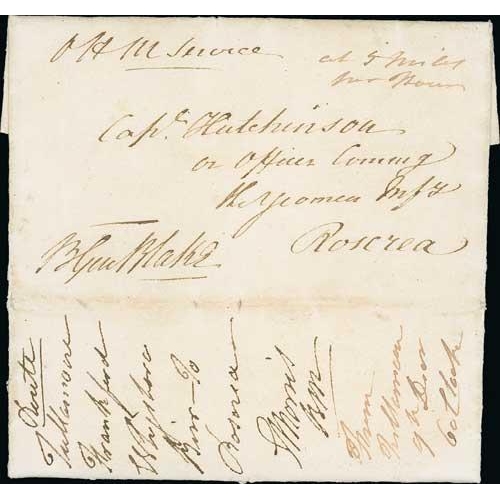 O H M Service
at 5 miles
per Hour
Capt. Hutchinson
or Officer Coming
the Yeomen Infy
Roscrea
B Gen Blake
Route
Tullamore
Frankford
Birr
Roscrea
Morris
From
Tullamore
9th Decr
6 o Clock